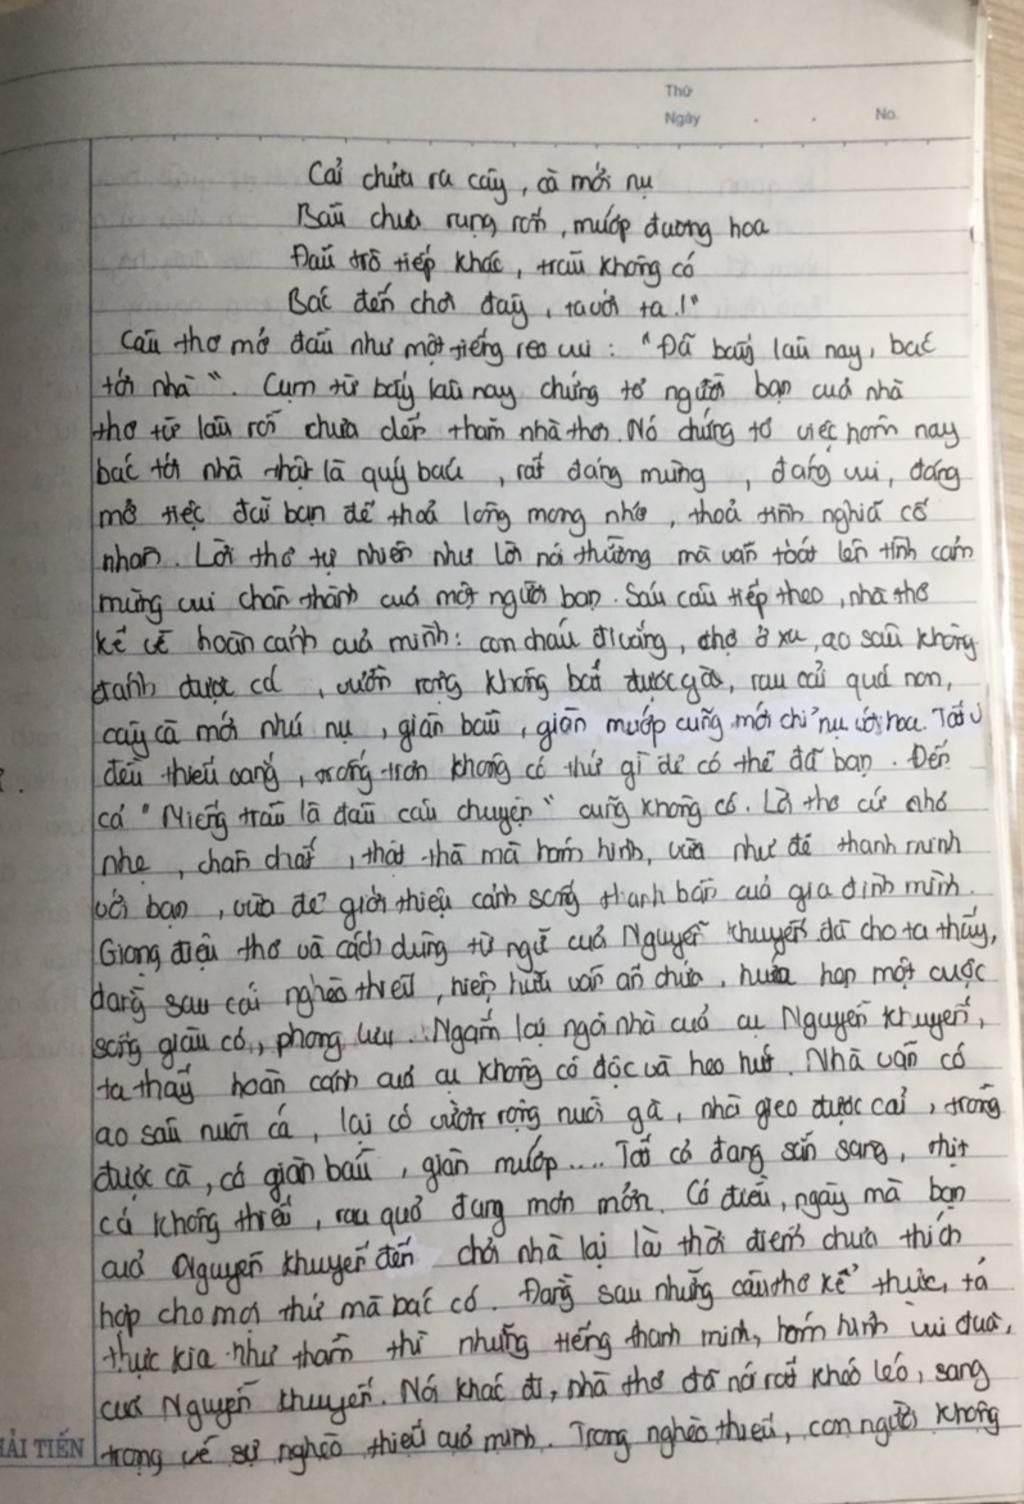 Thứ
Ngày . . No.
Cải chửa ra cây, cà mới nụ
Bầu chưa rụng rốn, mướp đương hoa
Đầu trò tiếp khác, trầu không có
Bác đến chơi đây, ta với ta!"
Câu thơ mở đầu như một tiếng reo vui: "Đã bấy lâu nay, bác
tới nhà". Cụm từ bấy lâu nay chứng tỏ người bạn của nhà
thơ từ lâu rồi chưa đến thăm nhà thơ. Nó chứng tỏ việc hôm nay
bác tới nhà thật là quý báu, rất đáng mừng, đáng vui, đáng
mở tiệc đãi bạn để thoả lòng mong nhớ, thoả tình nghĩa cố
nhân. Lời thơ tự nhiên như lời nói thường mà vẫn toát lên tình cảm
mừng vui chân thành của một người bạn. Sáu câu tiếp theo, nhà thơ
kể về hoàn cảnh của mình: con cháu đi vắng, chợ ở xa, ao sâu không
đánh được cá, vườn rộng không bắt được gà, rau cải quá non,
cây cà mới nhú nụ, giàn bầu, giàn mướp cũng mới chỉ nụ với hoa. Tất
đều thiếu vắng, trống trơn không có thứ gì để có thể đã bạn. Đến
cả "Miếng trầu là đầu câu chuyện" cũng không có. Lời thơ cứ nhỏ
nhẹ, chân chất, thật thà mà hóm hỉnh, vừa như để thanh minh
với bạn, vừa để giới thiệu cảnh sống thanh bần của gia đình mình.
Giọng điệu thơ và cách dùng từ ngữ của Nguyễn Khuyến đã cho ta thấy,
đằng sau cái nghèo thiếu, hiện hữu vẫn ẩn chứa, hứa hẹn một cuộc
sống giàu có, phong lưu. Ngắm lại ngôi nhà của cụ Nguyễn Khuyến,
ta thấy hoàn cảnh của cụ không cô độc và heo hút. Nhà vẫn có
ao sâu nuôi cá, lại có vườn rộng nuôi gà, nhà gieo được cải, trồng
được cà, có giàn bầu, giàn mướp.... Tất cả đang sẵn sàng, thịt
cá không thiếu, rau quả đang mơn mởn. Có điều, ngày mà bạn
của Nguyễn Khuyến đến chơi nhà lại là thời điểm chưa thích
hợp cho mọi thứ mà bác có. Đằng sau những câu thơ kể thực, tả
thực kia như thầm thì những tiếng thanh minh, hóm hỉnh vui đùa,
của Nguyễn Khuyến. Nói khác đi, nhà thơ đã nói rất khéo léo, sang
trọng về sự nghèo thiếu của mình. Trong nghèo thiếu, con người không
HẢI TIẾN